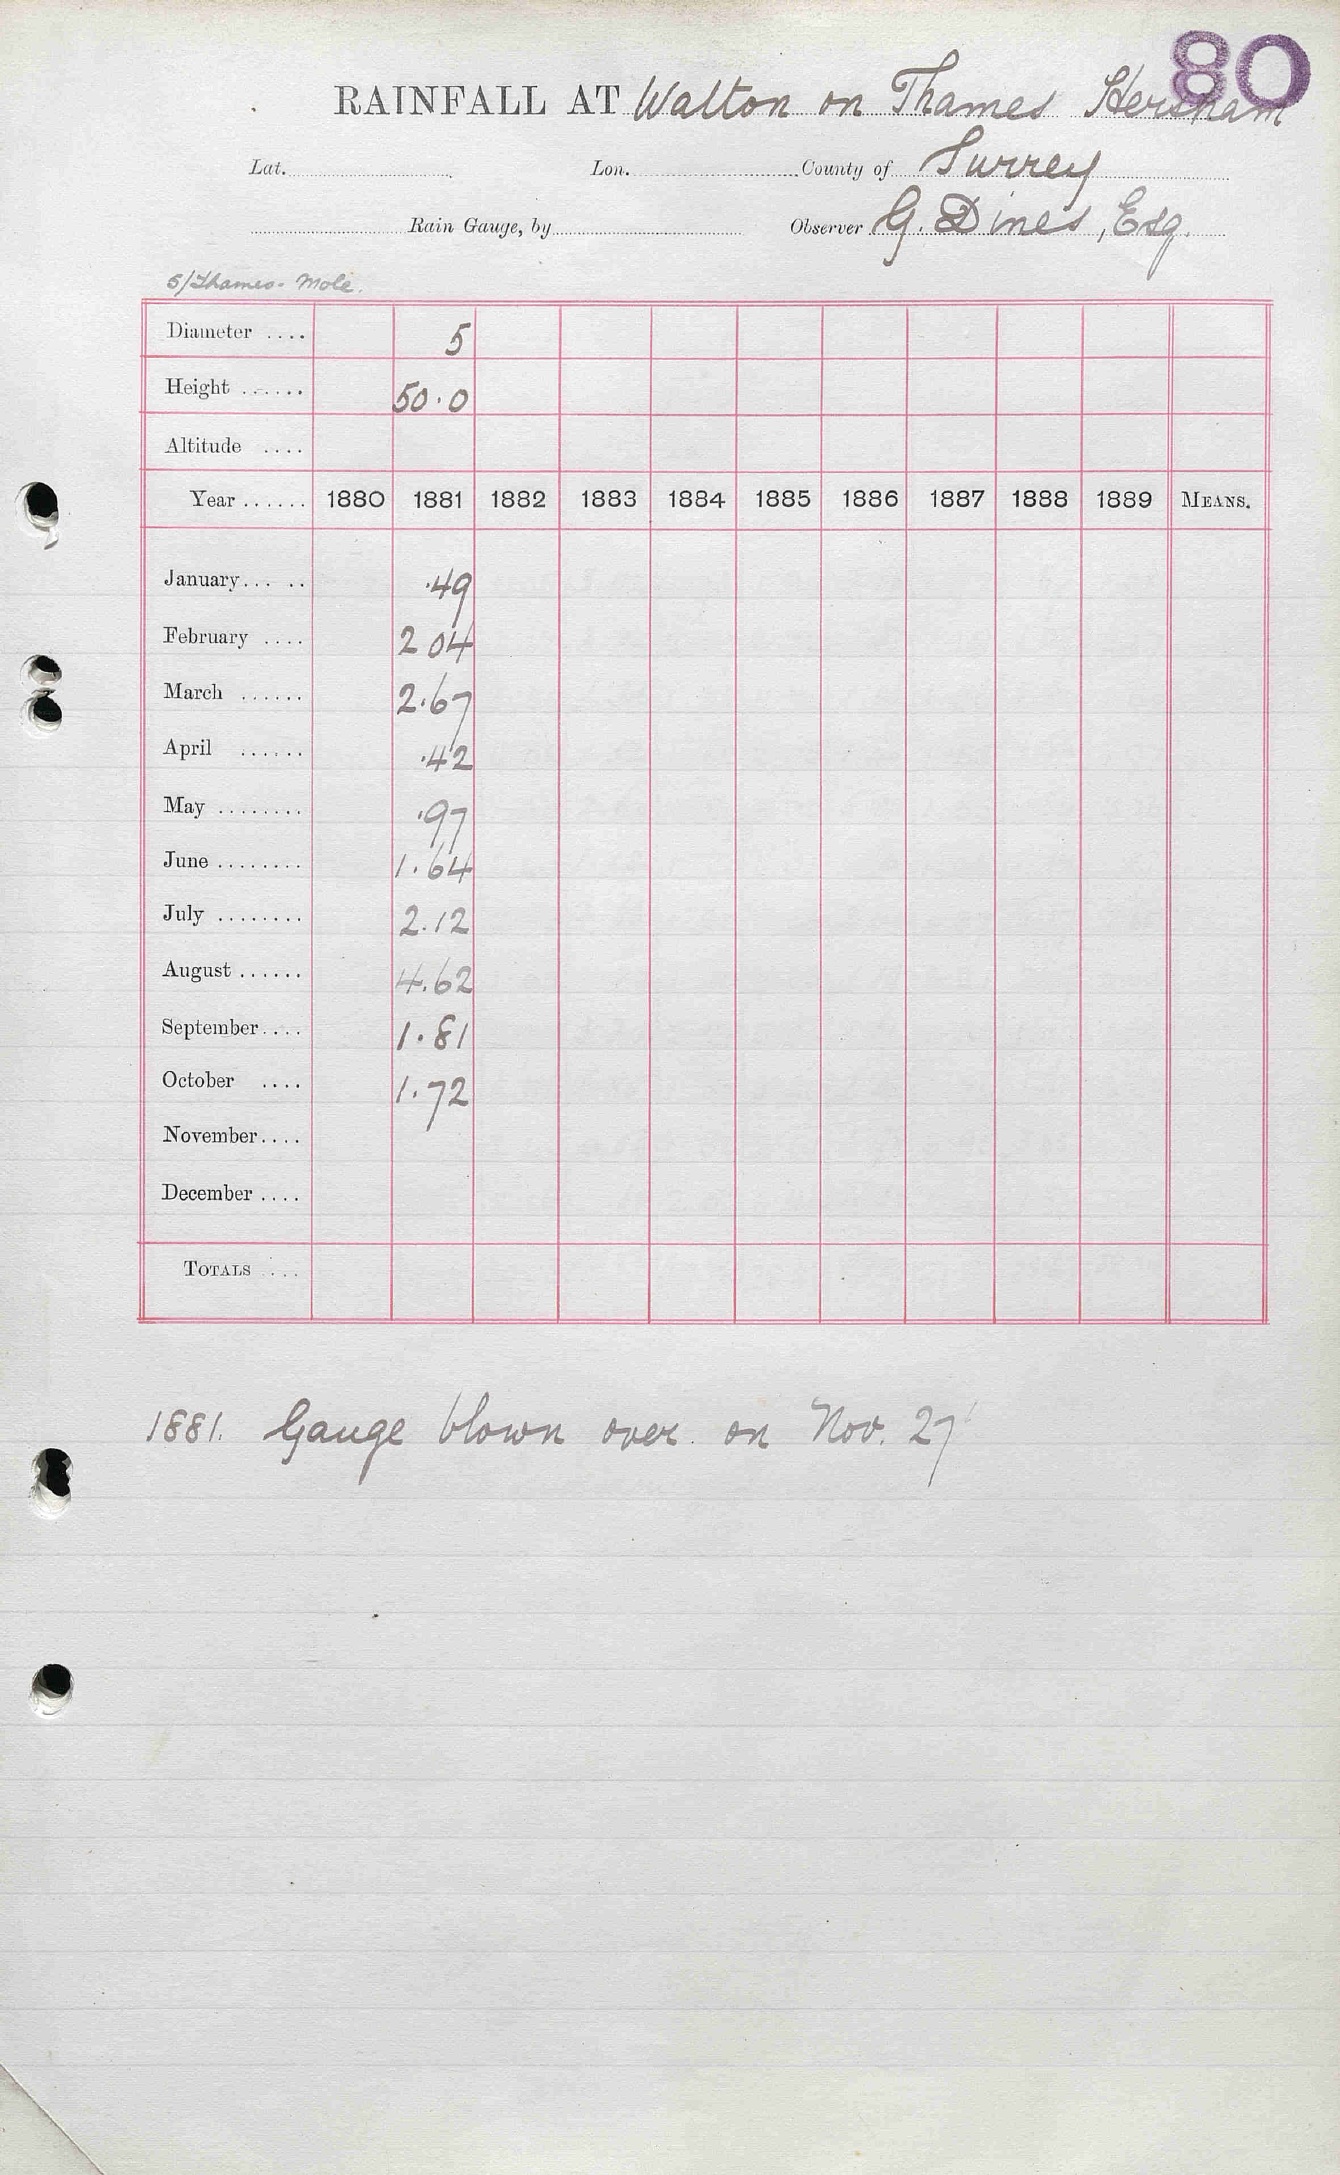 80
RAINFALL AT Walton on Thames Hersham
Lat. Lon. County of Surrey
Rain Gauge, by Observer G. Dines, Esq.
5/Thames - Mole.
Diameter .... 5
Height ...... 50.0
Altitude ....
Year ...... 1880 1881 1882 1883 1884 1885 1886 1887 1888 1889 MEANS.
January..... .49
February .... 2 04
March ...... 2.67
April ...... .42
May ........ .97
June ........ 1.64
July ........ 2.12
August ...... 4.62
September.... 1.81
October .... 1.72
November....
December ....
TOTALS ....
1881. Gauge blown over on Nov. 27